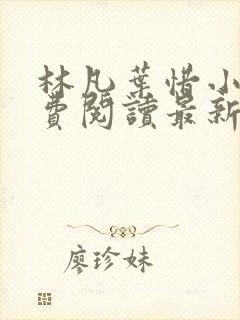 林凡葉惜小
費閱讀最新
廖珍妹